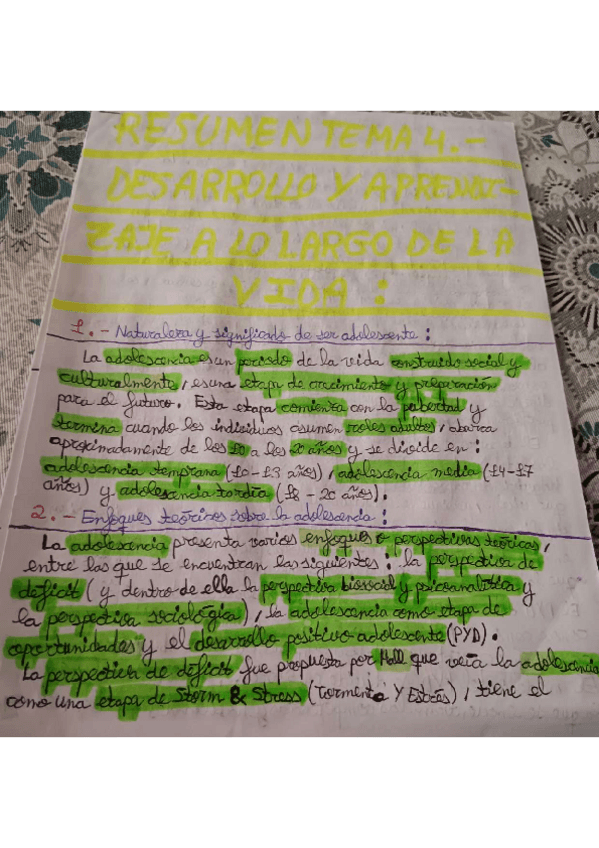 RESUMEN TEMA 4.-
DESARROLLO Y APRENDI-
ZAJE A LO LARGO DE LA
VIDA:
1.- Naturaleza y significado de ser adolescente:
La adolescencia es un periodo de la vida construido social y
culturalmente, es una etapa de crecimiento y preparación
para el futuro. Esta etapa comienza con la pubertad y
termina cuando los individuos asumen roles adultos, abarca
aproximadamente de los 10 a los 20 años y se divide en:
adolescencia temprana (10-13 años), adolescencia media (14-17
años) y adolescencia tardía (18-20 años).
2.- Enfoques teóricos sobre la adolescencia:
La adolescencia presenta varios enfoques o perspectivas teóricas,
entre las que se encuentran las siguientes: la perspectiva de
déficit (y dentro de ella la perspectiva biosocial y psicoanalítica y
la perspectiva sociológica), la adolescencia como etapa de
oportunidades y el desarrollo positivo adolescente (PYD).
La perspectiva de déficit fue propuesta por Hall que veía la adolescencia
como una etapa de Storm & Stress (Tormenta Y Estrés), tiene el